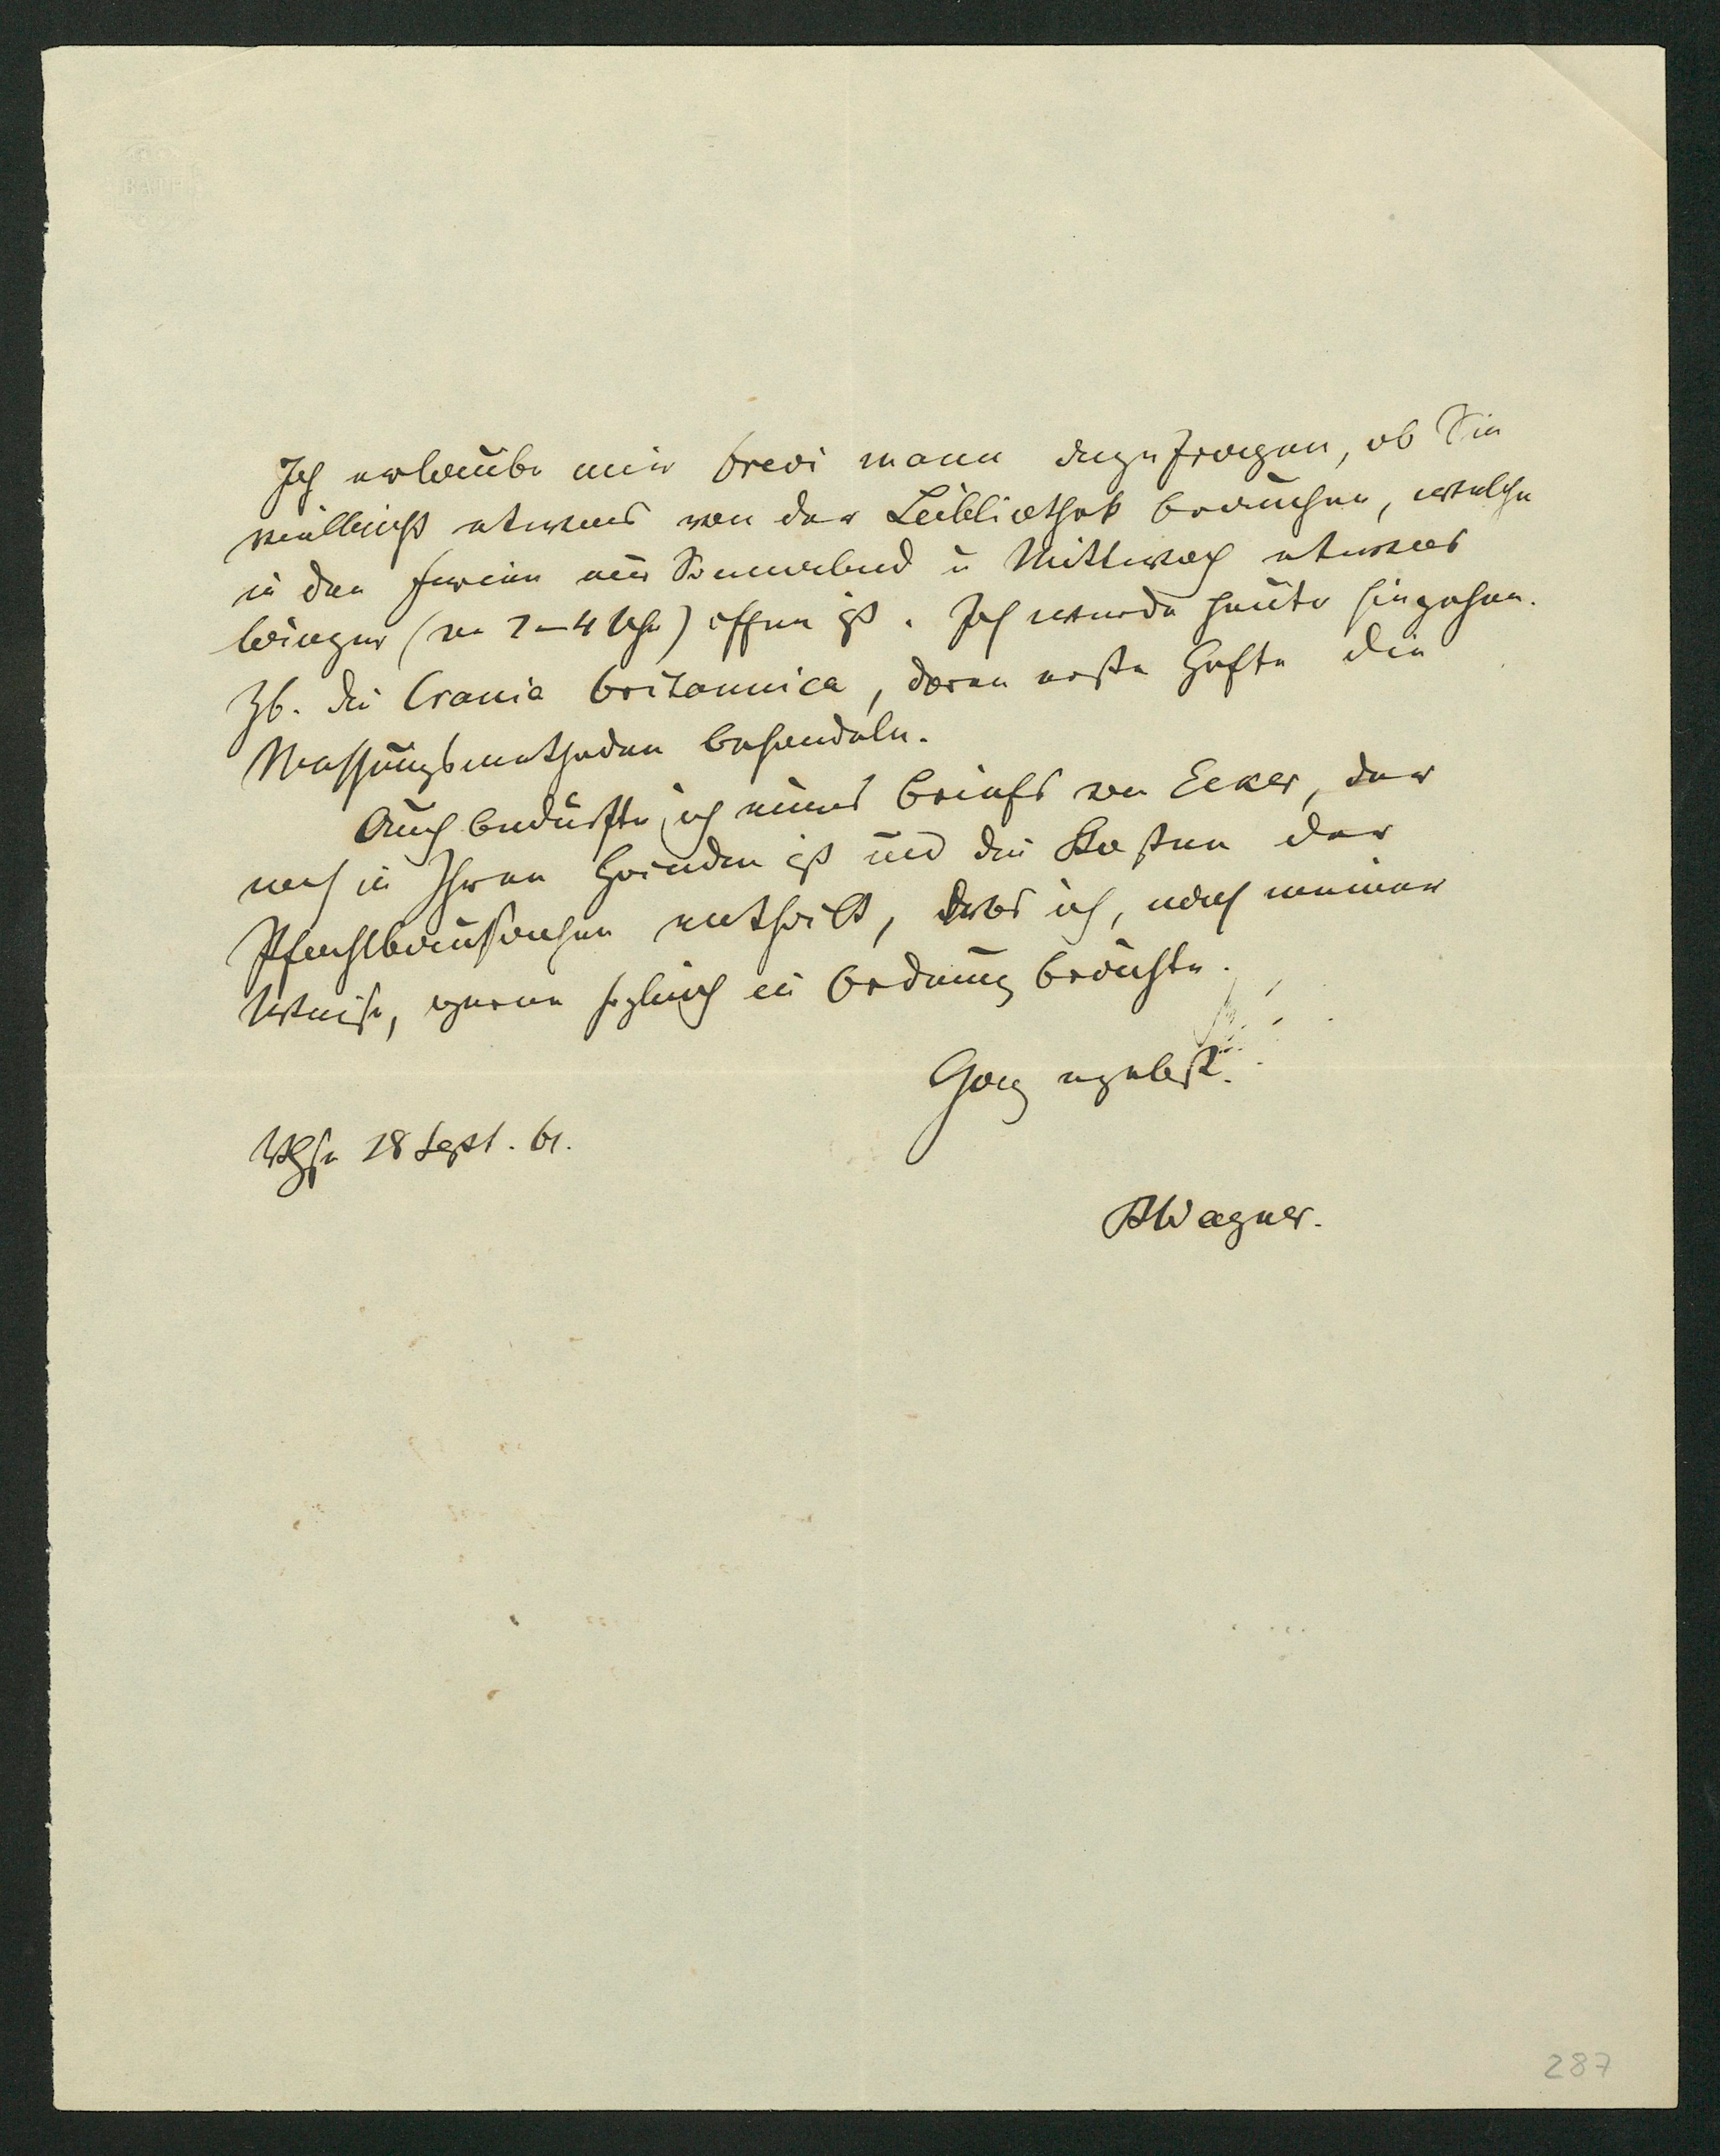 BATH
Ich erlaube mir brevi manu anzufragen, ob Sie
vielleicht etwas von der Bibliothek brauchen, welche
in den Ferien nur Sonnabend u Mittwoch etwas
länger (von 2–4 Uhr) offen ist. Ich werde heute hingehen.
Zb. die Crania britannica, deren erste Hefte die
Messungsmethoden behandeln.
Auch bedürfte ich eines Briefs von Ecker, der
noch in Ihren Händen ist und die Kosten der
Pfahlbausachen enthält, das ich, nach meiner
Weise, gerne sogleich in Ordnung brächte.
Ganz ergebst.
28 Sept. 61.
RWagner.
287